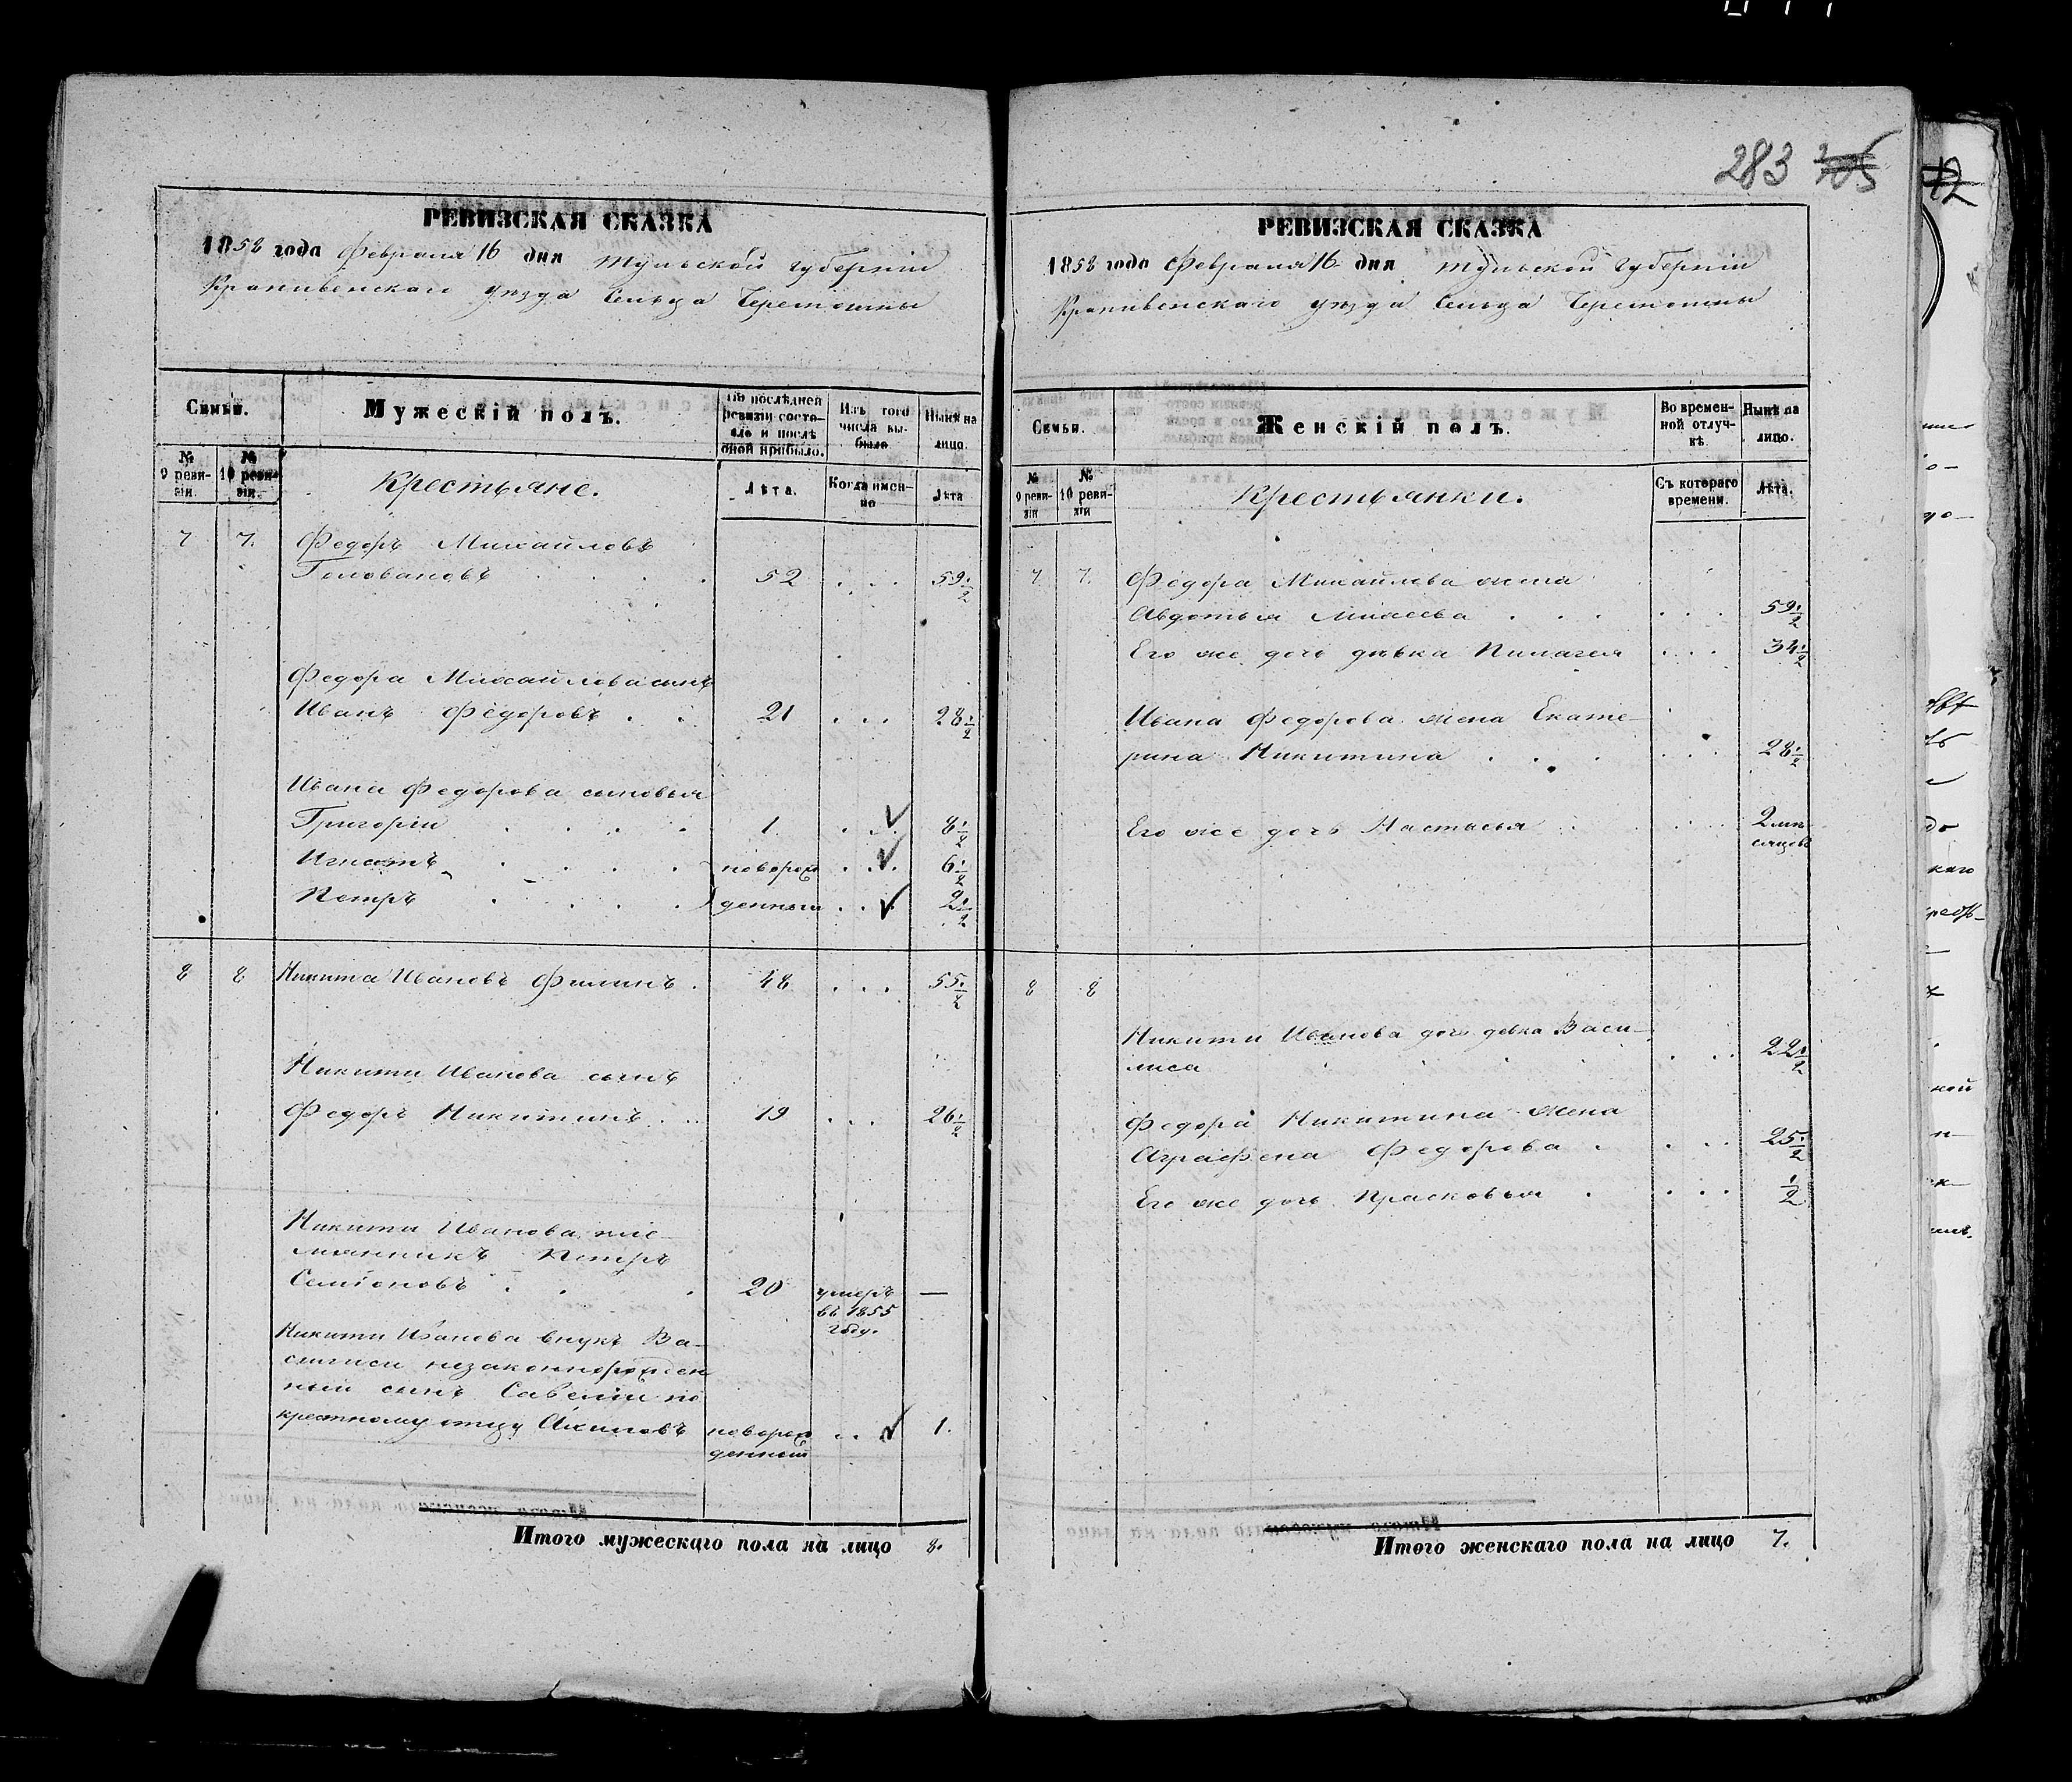 283 305
РЕВИЗСКАЯ СКАЗКА
1858 года Февраля 16 дня Тульской губерніи
Крапивенскаго уѣзда Сельца Черемошны
Семьи.
Мужескій полъ.
По послѣдней ревизіи состояло и послѣ оной прибыло.
Изъ того числа выбыло
Нынѣ на лицо.
№ 9 ревизіи.
№ 10 ревизіи.
Крестьяне.
Лѣта.
Когда именно
Лѣта
7 7. Федоръ Михайловъ
Головановъ 52 59½
Федора Михайлова сынъ
Иванъ Федоровъ 21 28½
Ивана Федорова сыновья
Григорій 1. 8½
Игнатъ новорож 6½
Петръ денныи 2½
8 8 Никита Ивановъ Филинъ 48 55½
Никиты Иванова сынъ
Федоръ Никитинъ 19 26½
Никиты Иванова пле-
мянникъ Петръ
Семіоновъ 20 умеръ —
въ 1855
году.
Никиты Иванова внукъ Ва-
силисы незаконнорожден
ный сынъ Савелій по
крестному отцу новорож 1.
денный
Итого мужескаго пола на лицо 8.
РЕВИЗСКАЯ СКАЗКА
1858 года Февраля 16 дня Тульской Губерніи
Крапивенскаго уѣзда Сельца Черемошны
Семьи.
Женскій полъ.
Во временной отлучкѣ.
Нынѣ на лицо.
№ 9 ревизіи
№ 10 ревизіи
Крестьянки.
Съ котораго времени.
Лѣта.
7. 7. Федора Михайлова жена
Авдотья Михеева 59½
Его же дочь дѣвка Пилагея 34½
Ивана Федорова жена Екате-
рина Никитина 28½
Его же дочь Настасья 2 мѣ
сяцовъ
8 8
Никиты Иванова дочь девка Васи-
лиса 22½
Федора Никитина жена
Аграфена Федорова 25½
Его же дочь Прасковья ½
Итого женскаго пола на лицо 7.